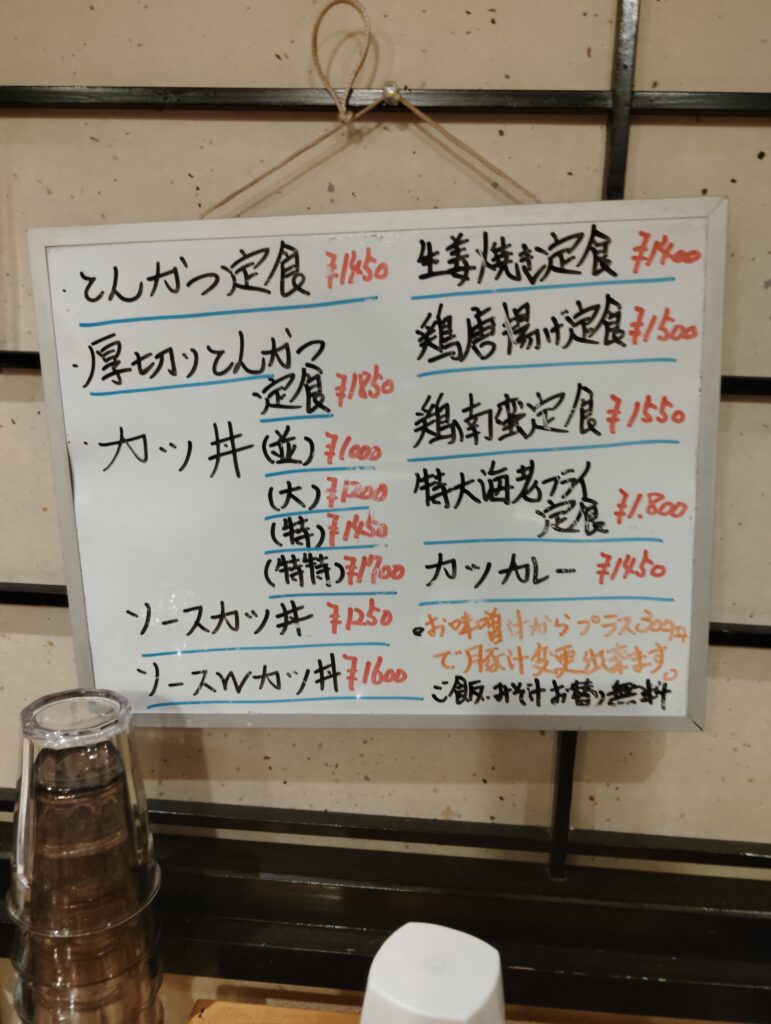 ・とんかつ定食 ¥1450
・厚切りとんかつ
定食 ¥1850
・カツ丼(並) ¥1000
(大) ¥1200
(特) ¥1450
(特特) ¥1700
ソースカツ丼 ¥1250
ソースWカツ丼 ¥1600
生姜焼き定食 ¥1400
鶏唐揚げ定食 ¥1500
鶏南蛮定食 ¥1550
特大海老フライ
定食 ¥1.800
カツカレー ¥1450
・お味噌汁からプラス300円
で豚汁変更出来ます。
ご飯・みそ汁お替り無料